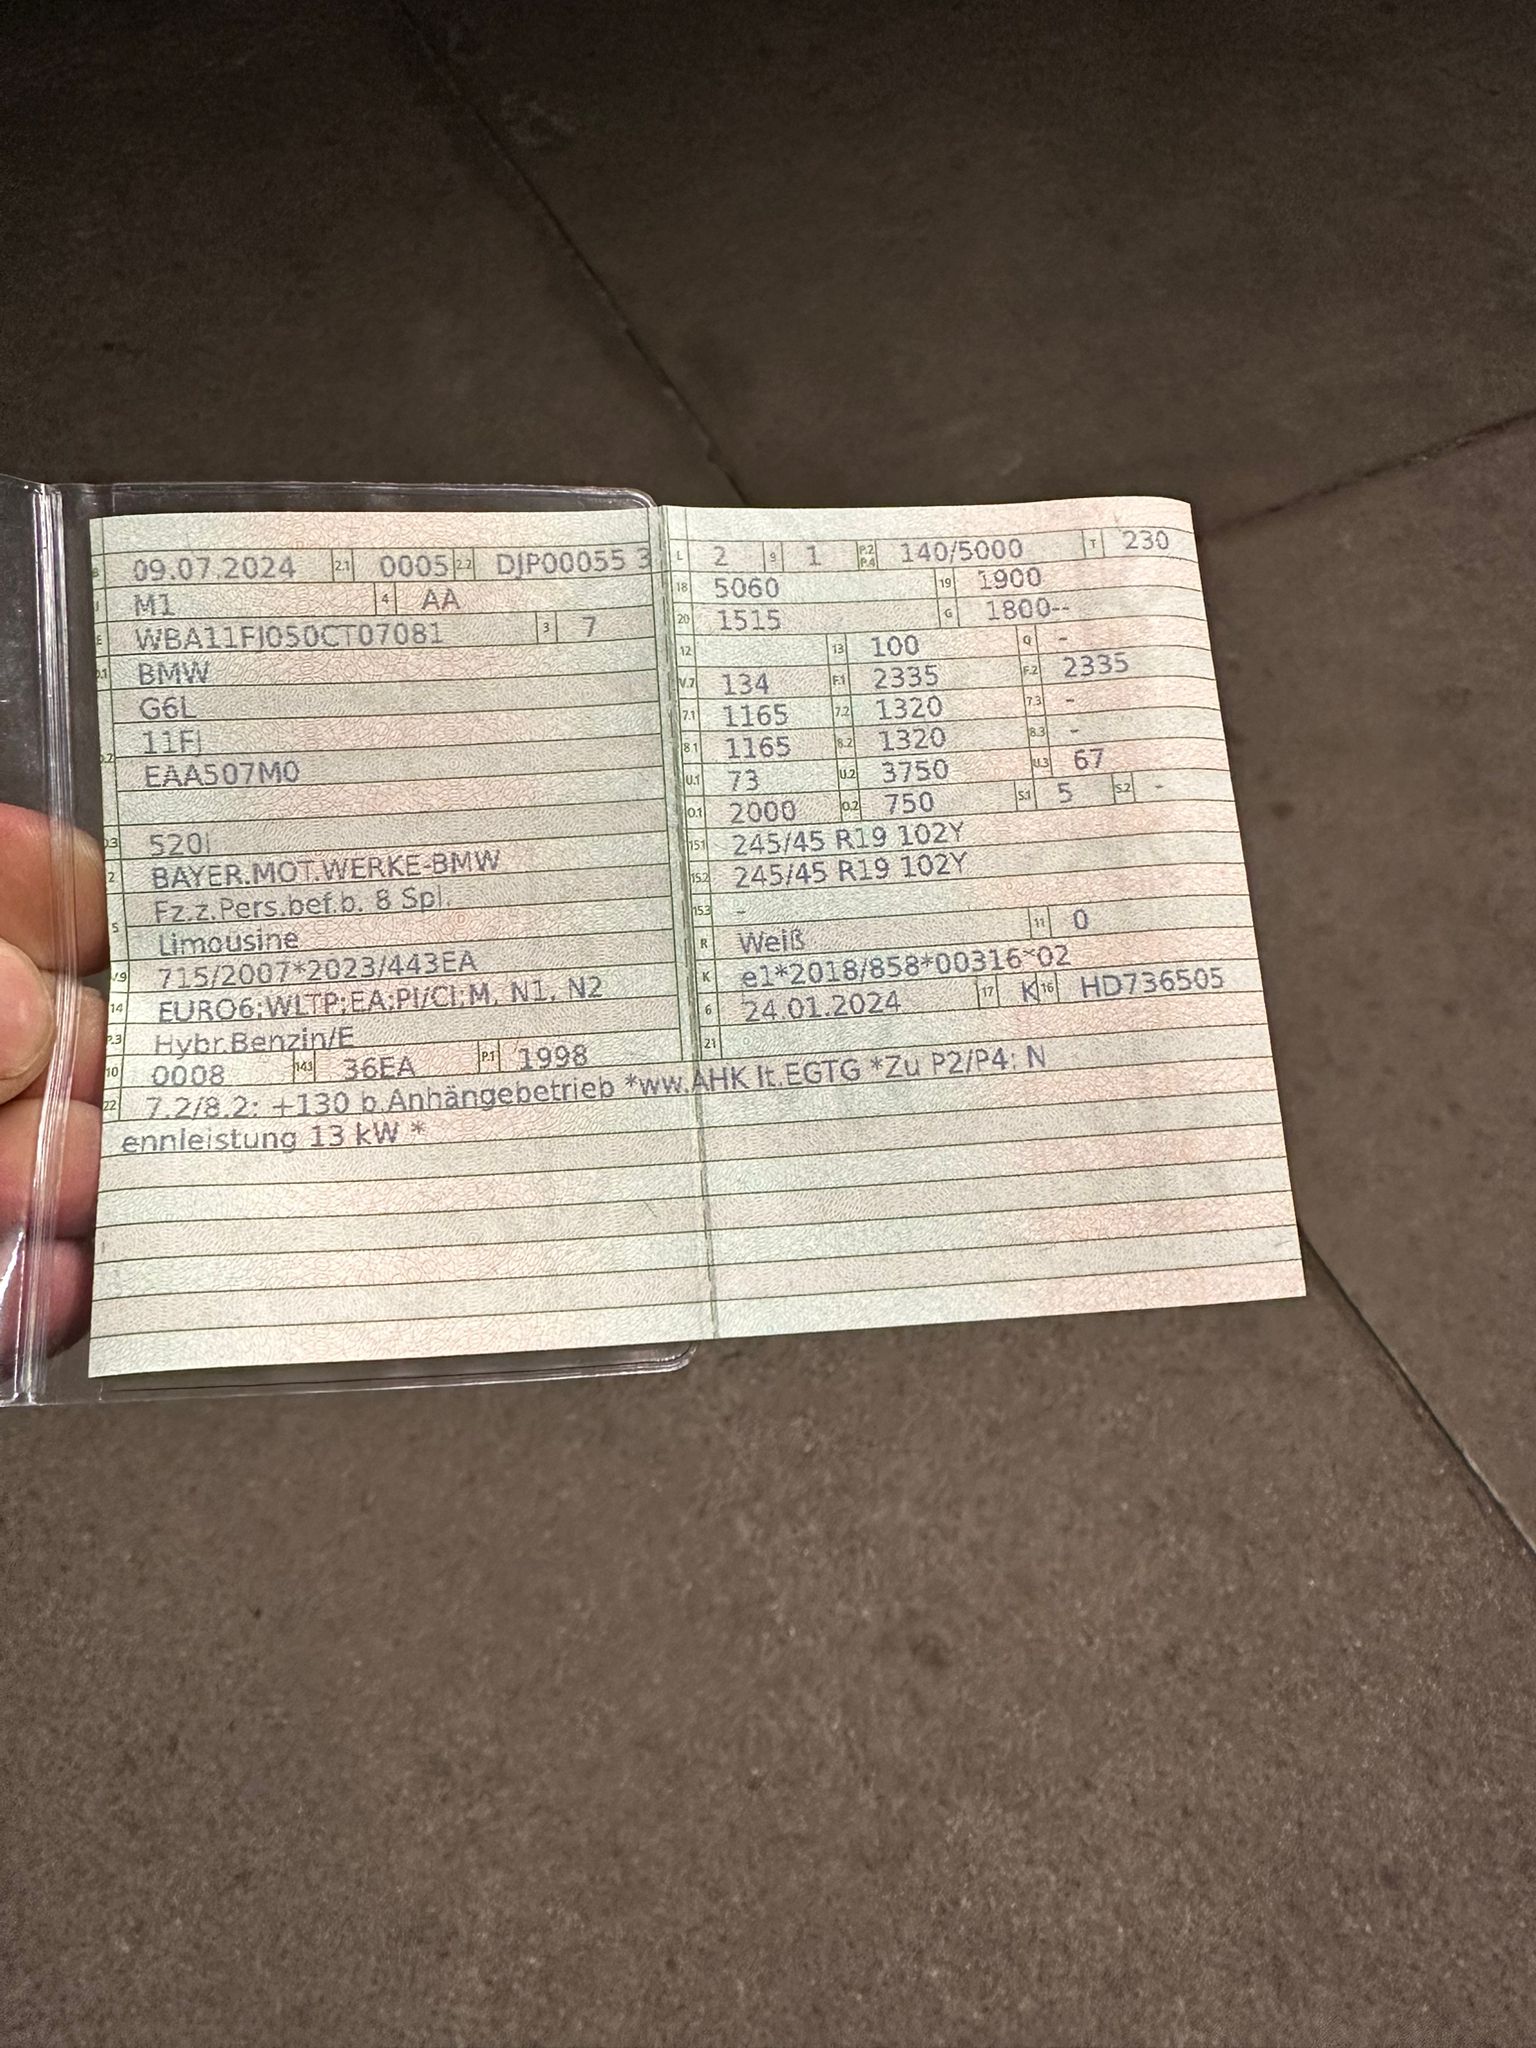 B 09.07.2024 2.1 0005 2.2 DJP00055 3
J M1 4 AA
E WBA11FJ050CT07081 3 7
D.1 BMW
G6L
D.2 11FJ
EAA507M0
D.3 520i
2 BAYER.MOT.WERKE-BMW
5 Fz.z.Pers.bef.b. 8 Spl.
Limousine
V9 715/2007*2023/443EA
14 EURO6;WLTP;EA;PI/CI;M, N1, N2
P.3 Hybr.Benzin/E
10 0008 14.1 36EA P.1 1998
L 2 9 1 P.2 P.4 140/5000 T 230
18 5060 19 1900
20 1515 G 1800--
12 13 100 Q -
V.7 134 F.1 2335 F.2 2335
7.1 1165 7.2 1320 7.3 -
8.1 1165 8.2 1320 8.3 -
U.1 73 U.2 3750 U.3 67
O.1 2000 O.2 750 S.1 5 S.2 -
15.1 245/45 R19 102Y
15.2 245/45 R19 102Y
15.3 -
R Weiß 11 0
K e1*2018/858*00316*02
6 24.01.2024 17 K 16 HD736505
21
22 7.2/8.2: +130 b.Anhängebetrieb *ww.AHK lt.EGTG *Zu P2/P4: N
ennleistung 13 kW *